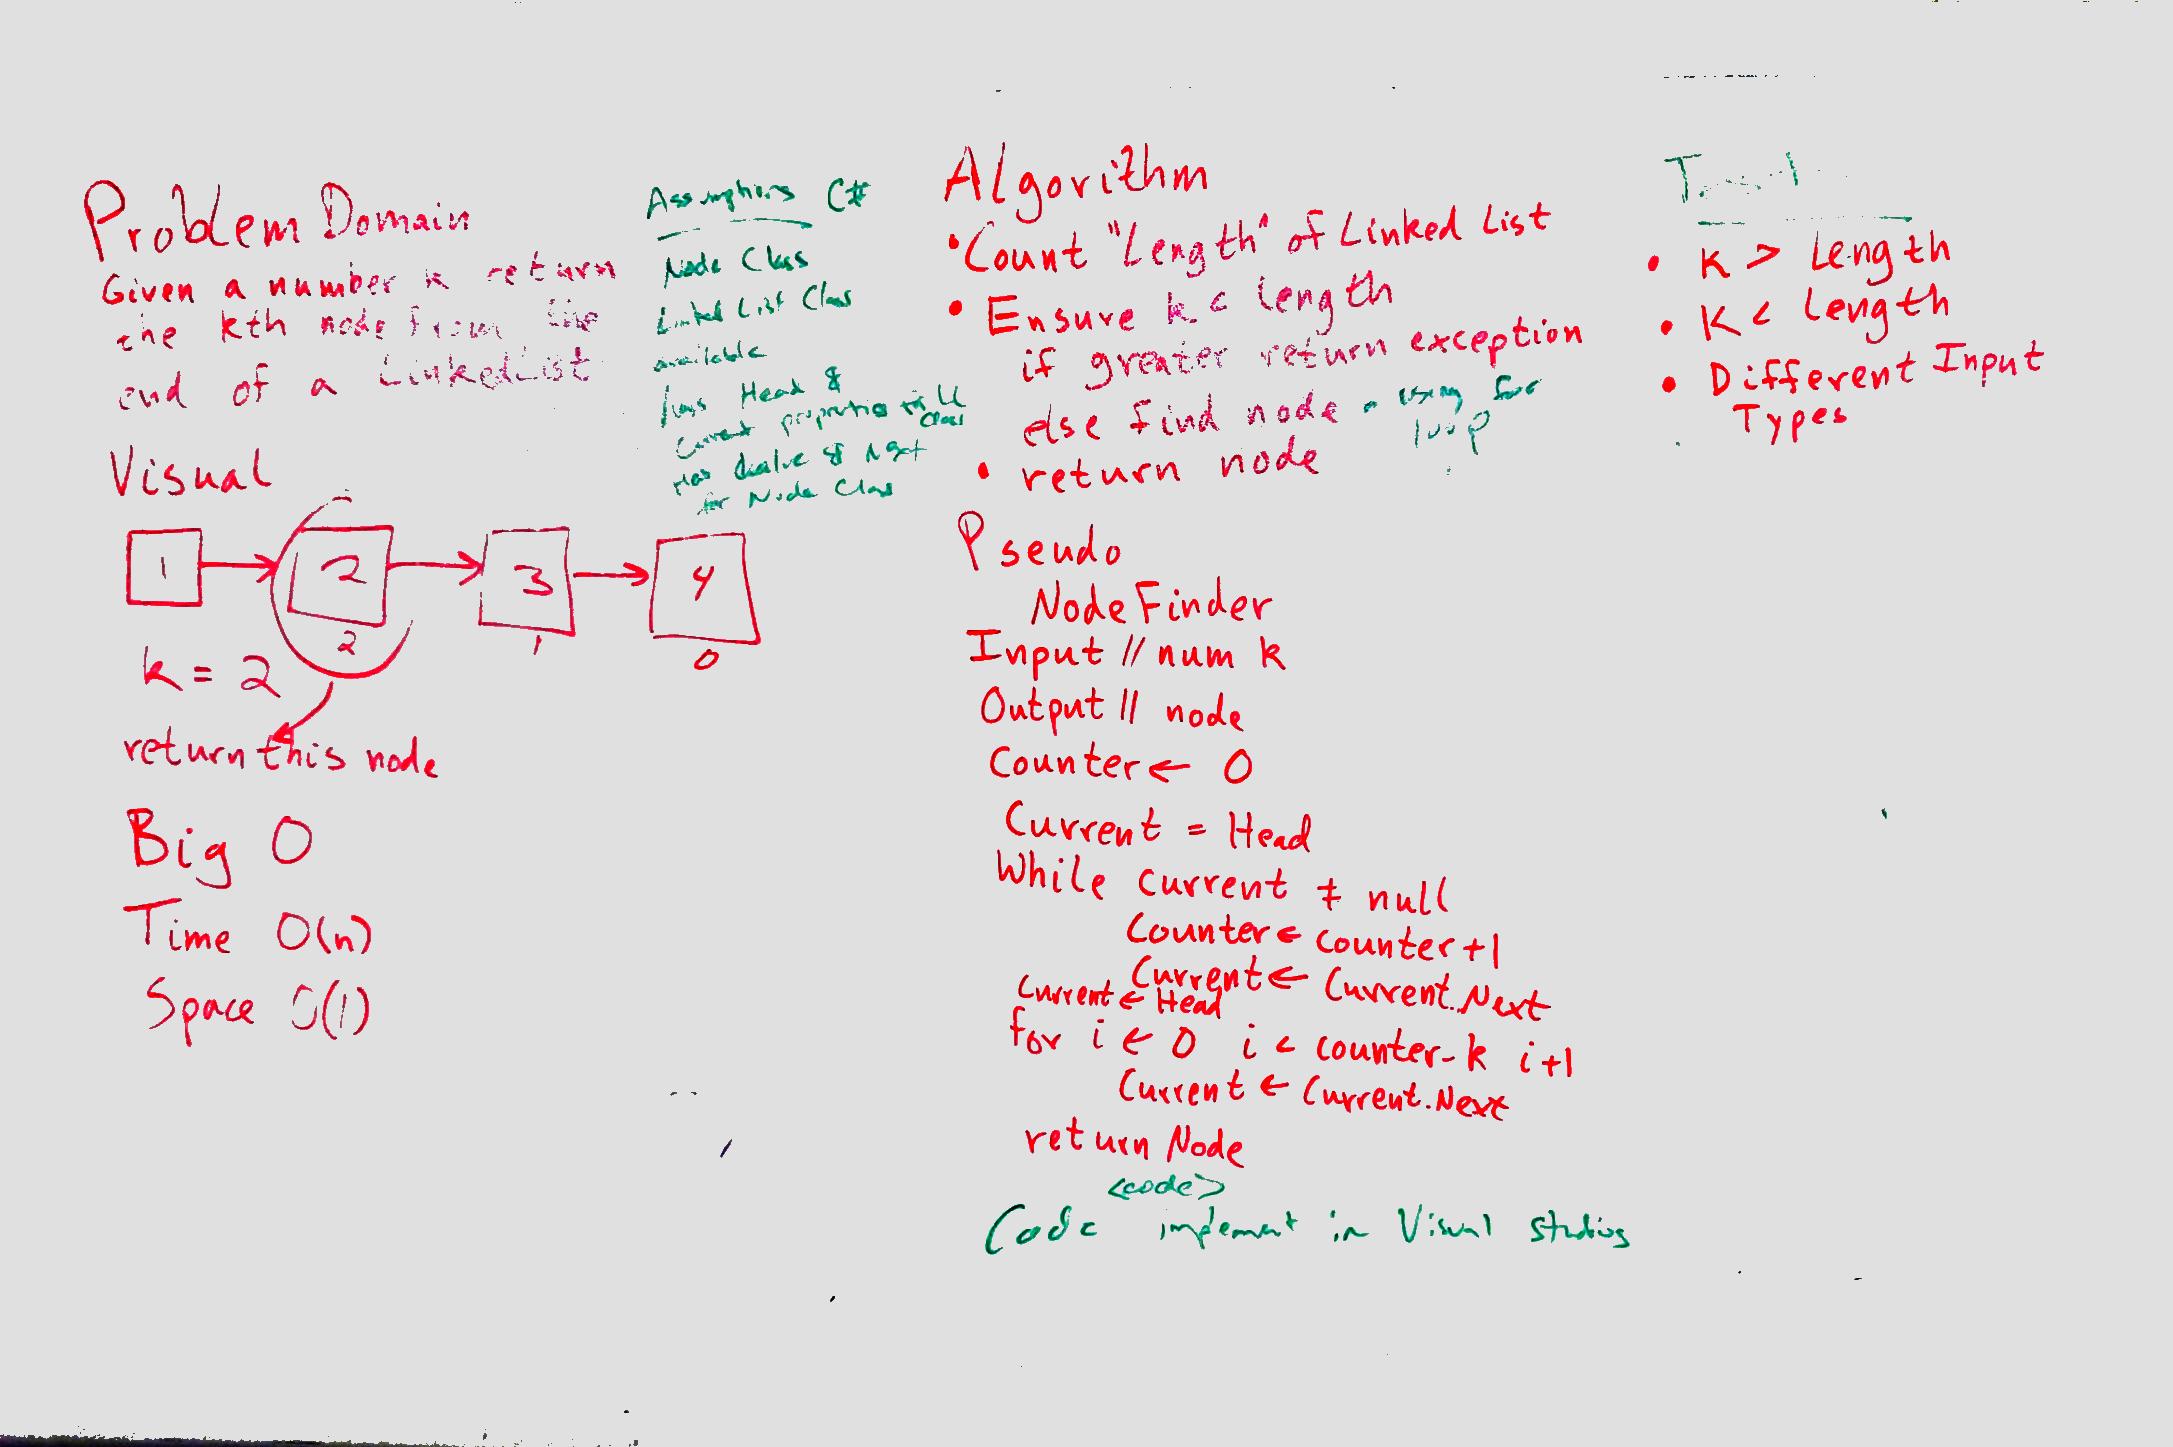 Problem Domain
Given a number k return
the kth node from the
end of a LinkedList
Visual
1 2 3 4
2 1 0
k = 2
return this node
Big O
Time O(n)
Space O(1)
Assumptions C#
Node Class
Linked List Class
available
Head &
Current properties to LL
Class
Has & Next
for Node Class
Algorithm
• Count "Length" of Linked List
• Ensure k < length
if greater return exception
else find node - using for
loop
• return node
Pseudo
NodeFinder
Input // num k
Output // node
Counter ← 0
Current = Head
While current ≠ null
Counter ← counter+1
Current ← Current.Next
Current ← Head
for i ← 0 i < counter-k i+1
Current ← Current.Next
return Node
<code>
Code implement in Visual studios
• K > Length
• K < Length
• Different Input
Types